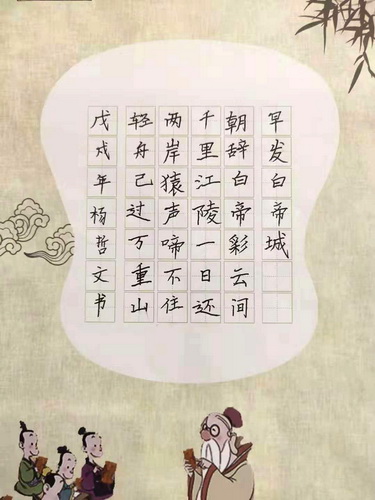 早发白帝城
朝辞白帝彩云间
千里江陵一日还
两岸猿声啼不住
轻舟已过万重山
戊戌年杨哲文书